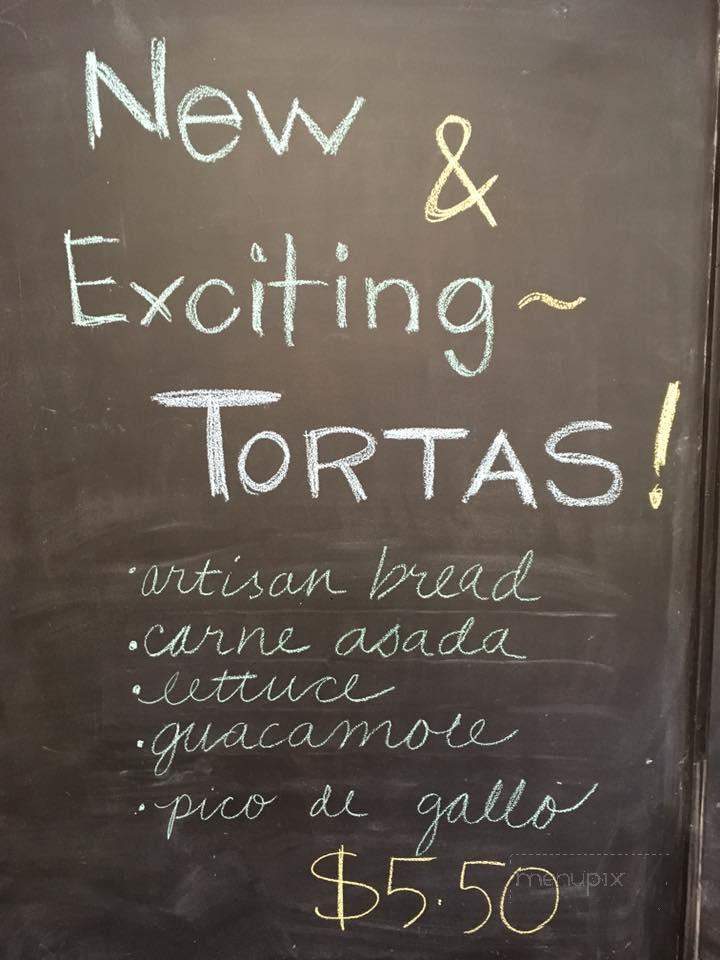 New
&
Exciting~
TORTAS!
·artisan bread
·carne asada
·lettuce
·guacamole
·pico de gallo
$5.50
menupix